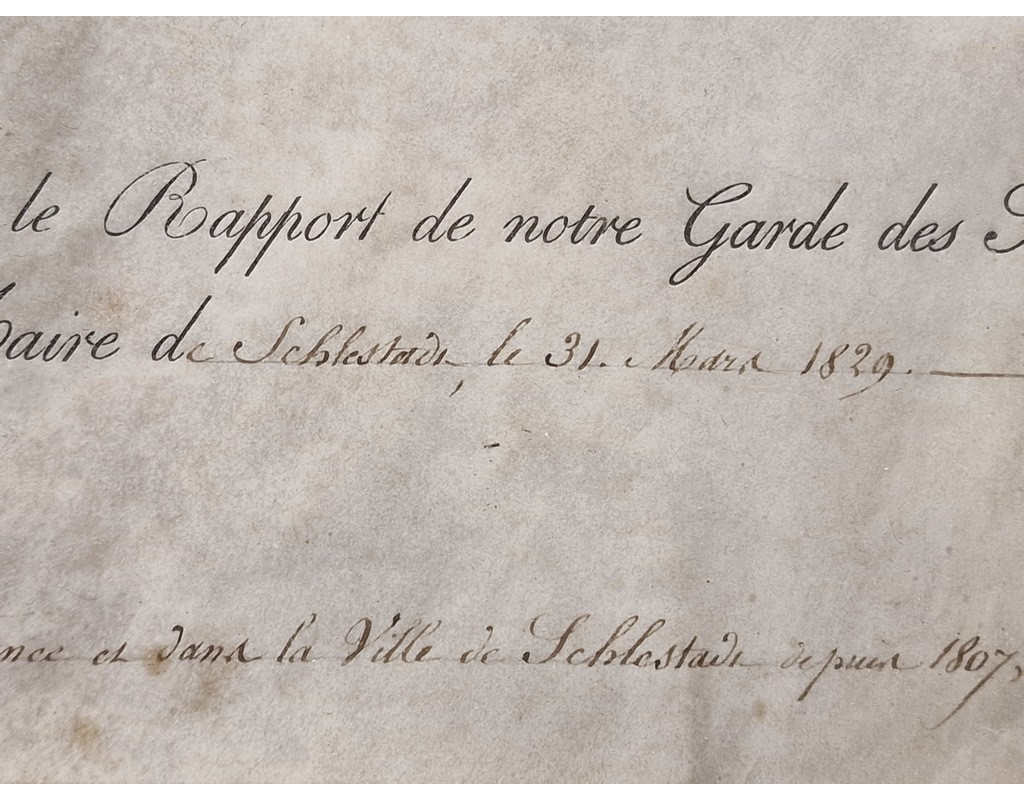 le Rapport de notre Garde des S
Maire de Schlestadt, le 31. Mars 1829.
nce et dans la Ville de Schlestadt depuis 1807,